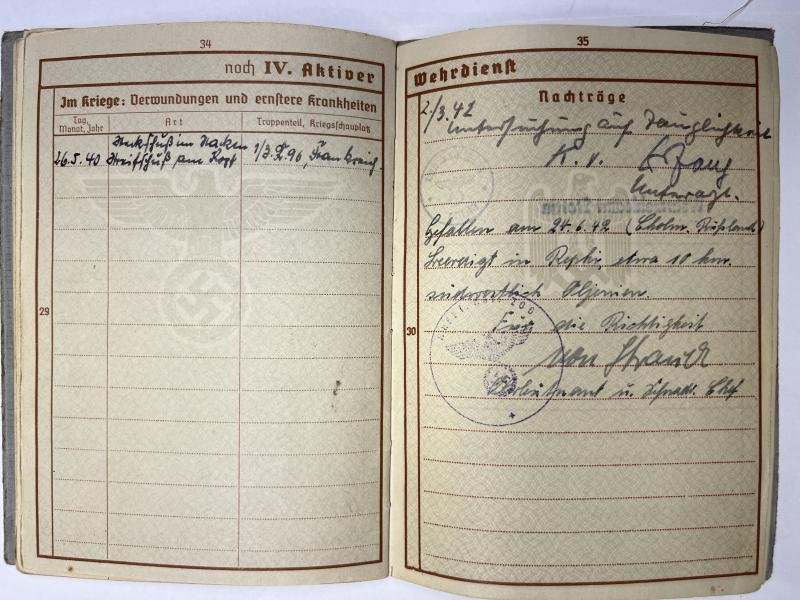 34
noch IV. Aktiver
Im Kriege: Verwundungen und ernstere Krankheiten
Tag, Monat, Jahr
Art
Truppenteil, Kriegsschauplatz
26.5.40 Steckschuß im Nacken Streifschuß am Kopf
1/J.R.96, Frankreich.
29
35
Wehrdienst
Nachträge
2./3.42
Untersuchung auf Tauglichkeit
K.v.
Unterarzt.
Gefallen am 24.6.42 (Cholm, Rußland)
Beerdigt in etwa 10 km.
südwestlich
30
Für die Richtigkeit
von
Oberleutnant u. Chef